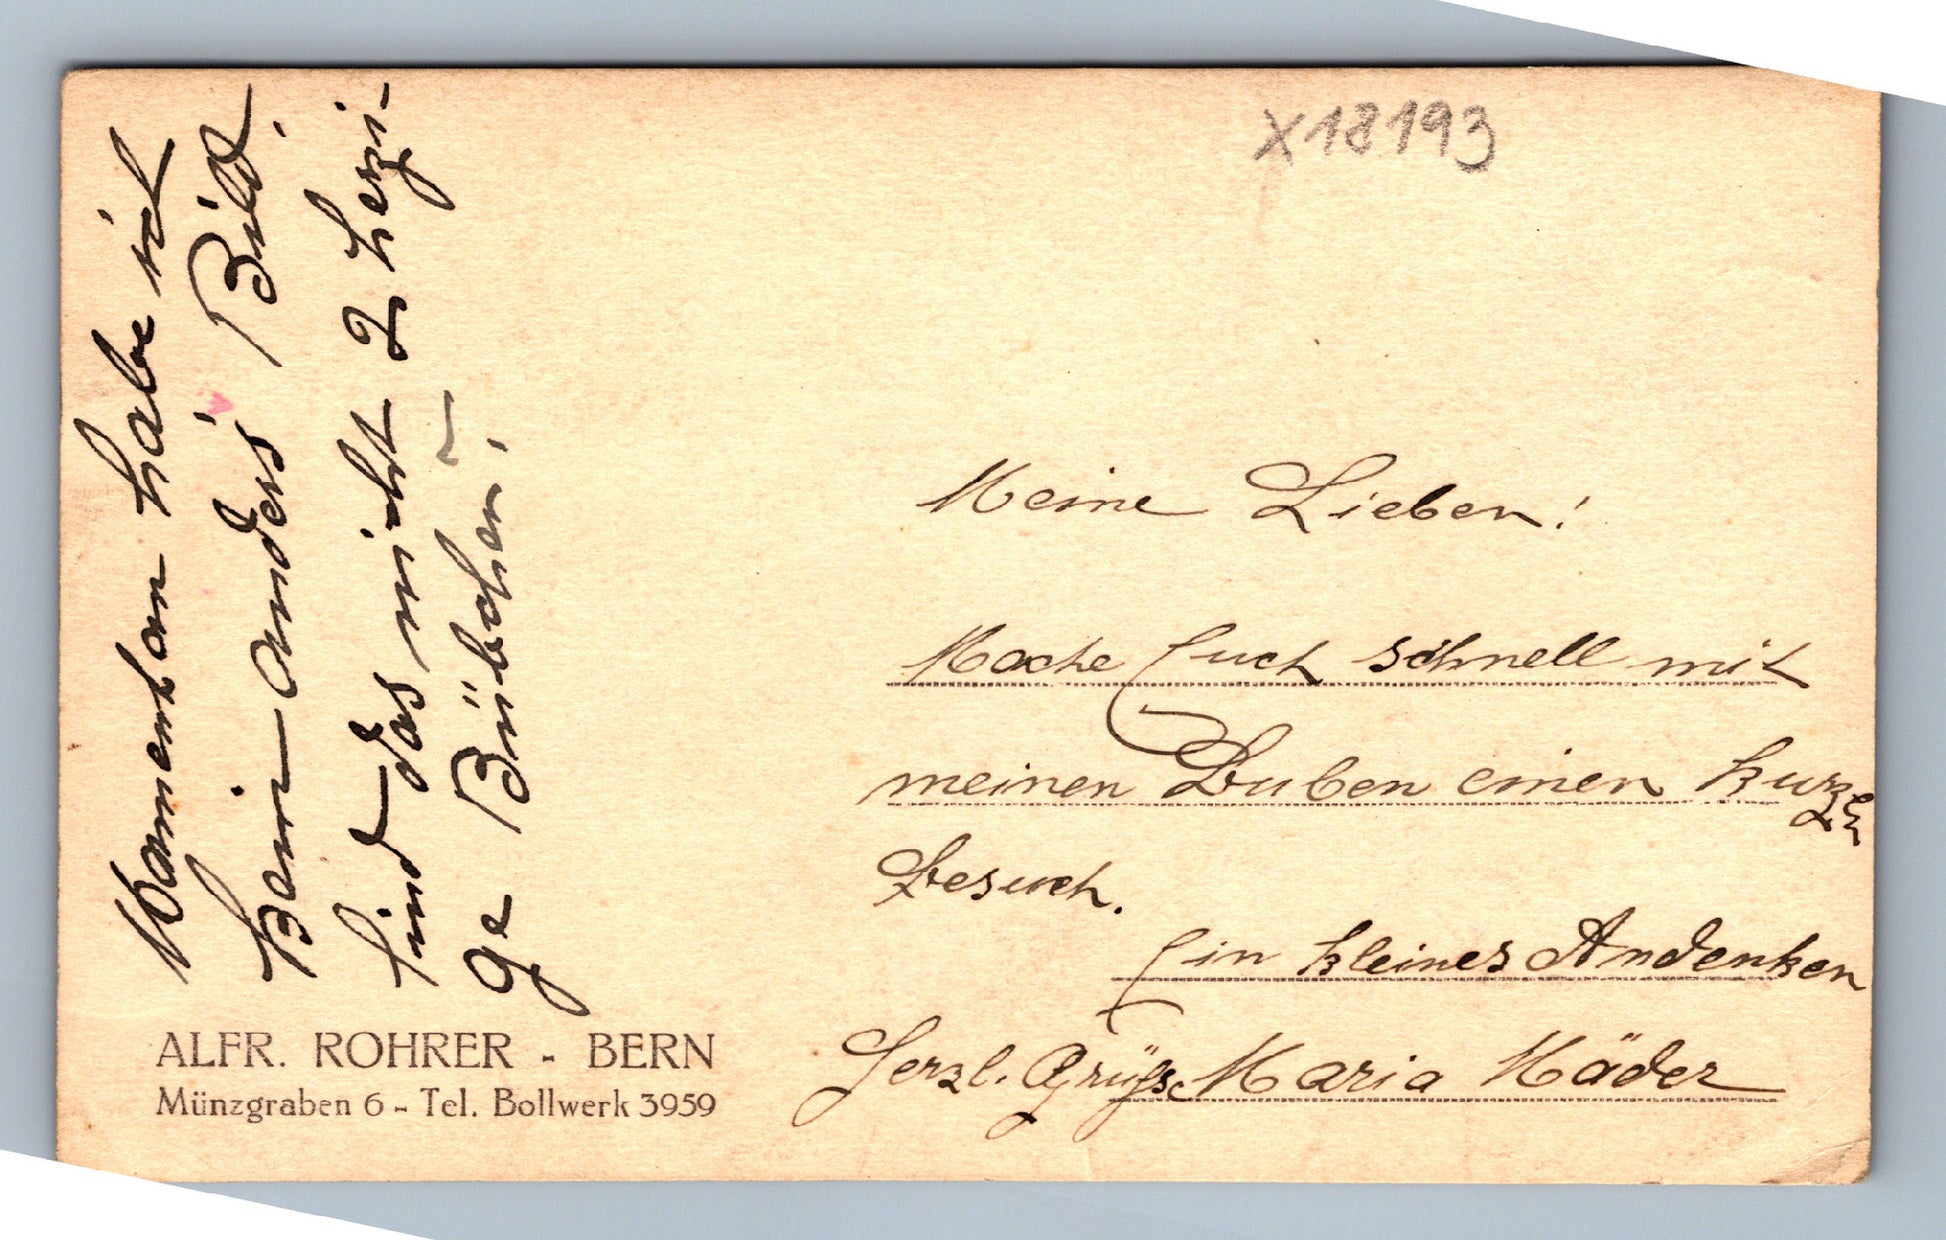 X18193
Momentan habe ich
kein anders Bild.
Sind das nicht 2 herzi-
ge Bübchen!
Meine Lieben!
Mache Euch schnell mit
meinen Buben einen kurzen
Besuch.
Ein kleines Andenken
Herzl. Grüsse Maria Mäder
ALFR. ROHRER - BERN
Münzgraben 6 - Tel. Bollwerk 3959